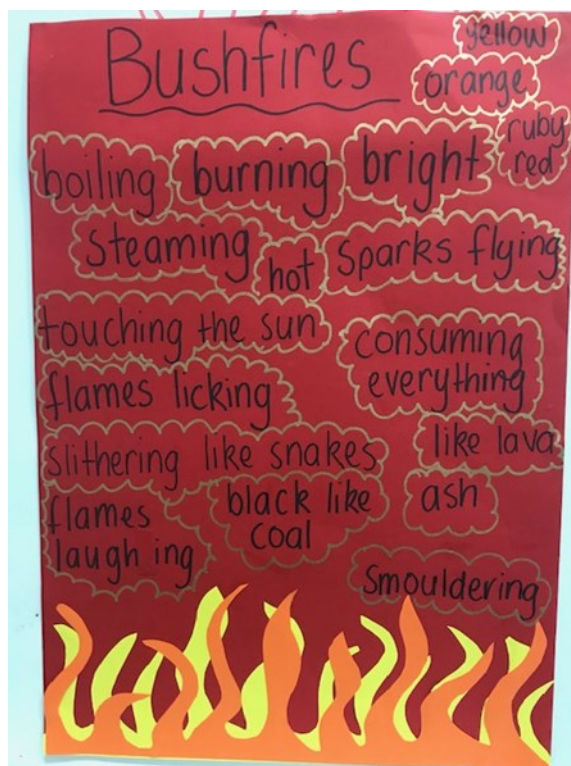 Bushfires
yellow
orange
ruby
red
boiling
burning
bright
steaming
hot
sparks flying
touching the sun
consuming
everything
flames licking
like lava
slithering like snakes
flames
laughing
black like
coal
ash
smouldering